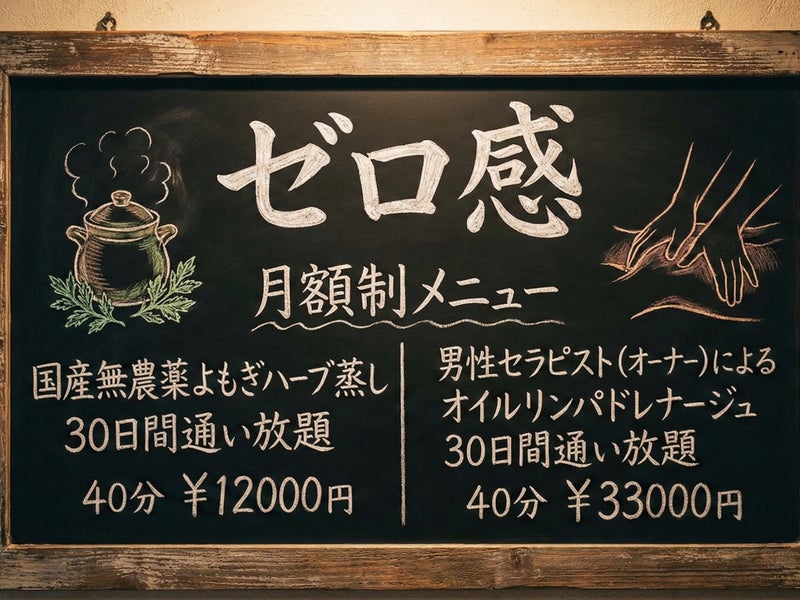 ゼロ感
月額制メニュー
国産無農薬よもぎハーブ蒸し
30日間通い放題
40分 ¥12000円
男性セラピスト(オーナー)による
オイルリンパドレナージュ
30日間通い放題
40分 ¥33000円